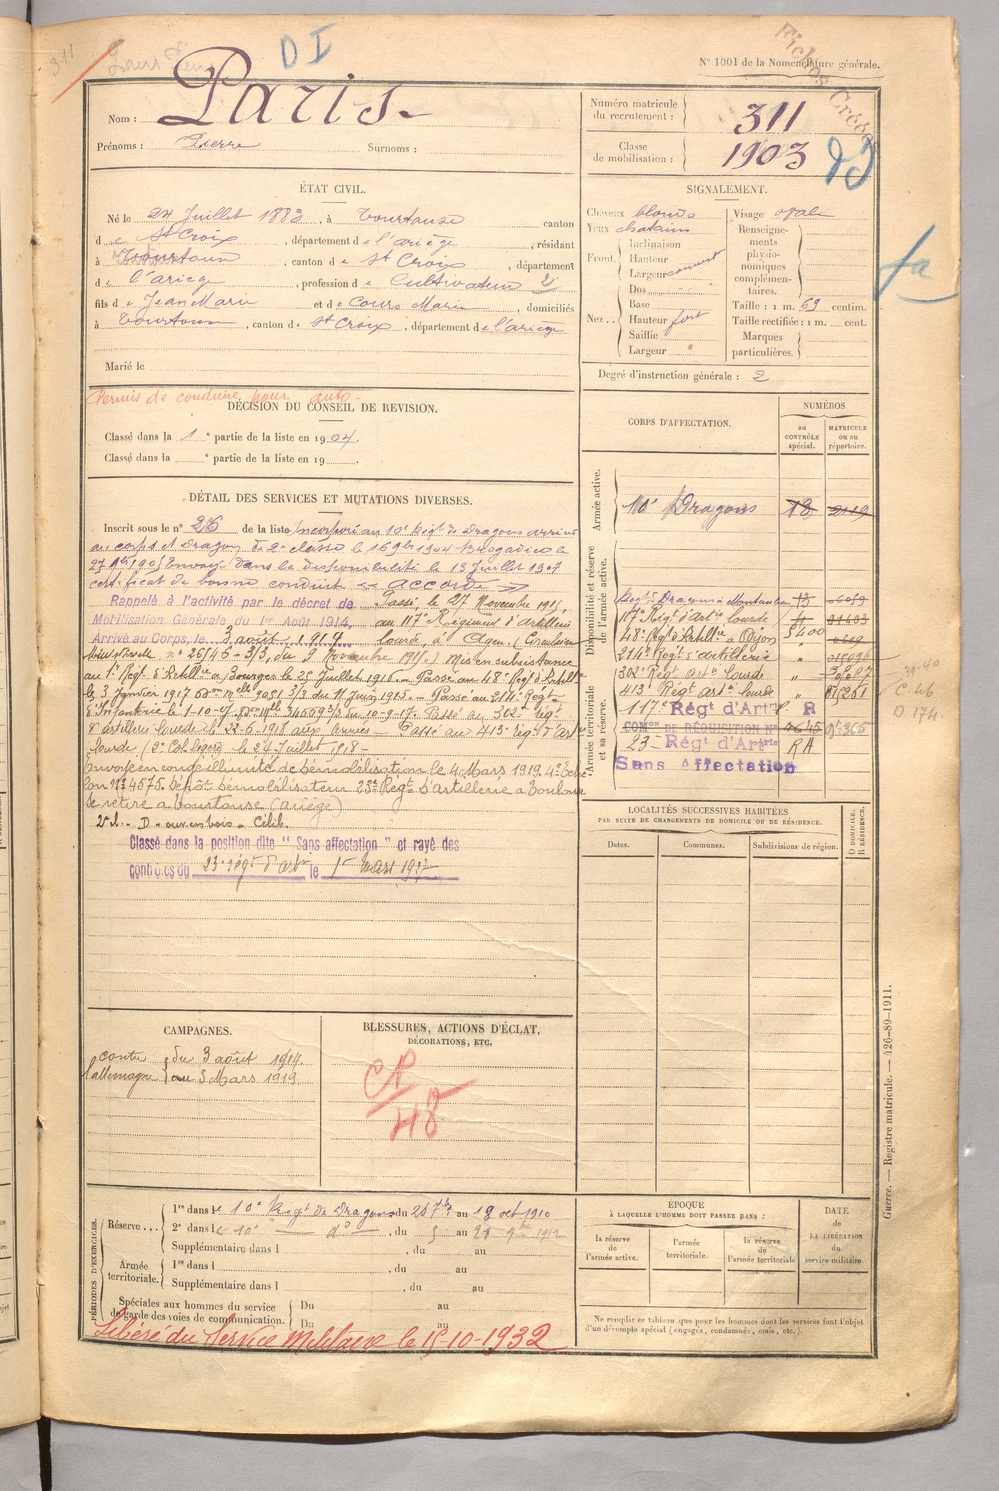 311
D I
Fiches Créées
N° 1001 de la Nomenclature générale.
Nom : Paris
Prénoms : Pierre Surnoms :
Numéro matricule du recrutement : 311
Classe de mobilisation : 1903
ÉTAT CIVIL.
Né le 24 Juillet 1883, à Tourtouse canton
de St Croix, département de l'ariège, résidant
à Tourtouse, canton de St Croix, département
de l'ariège, profession de Cultivateur 2
fils de Jean Marie et de Cours Marie, domiciliés
à Tourtouse, canton de St Croix, département de l'ariège
Marié le
SIGNALEMENT.
Cheveux blonds
Yeux chatains
Front. Inclinaison
Hauteur
Largeur couvert
Nez.. Dos
Base
Hauteur fort
Saillie
Largeur
Visage ovale
Renseignements physionomiques complémentaires.
Taille : 1 m. 69 centim.
Taille rectifiée : 1 m. cent.
Marques particulières.
Degré d'instruction générale : 2
Permis de conduire pour auto
DÉCISION DU CONSEIL DE REVISION.
Classé dans la 1e partie de la liste en 1904.
Classé dans la e partie de la liste en 19
DÉTAIL DES SERVICES ET MUTATIONS DIVERSES.
Inscrit sous le n° 26 de la liste Incorporé au 10e Régt de Dragons arrivé
au corps et dragon de 2e classe le 16 9bre 1904 Brigadier le
27 1905 Envoyé dans la disponibilité le 13 Juillet 1907
certificat de bonne conduite accordé
Rappelé à l'activité par le décret de
Mobilisation Générale du 1er Août 1914,
Arrivé au Corps, le 3 août 1914
Passé le 27 Novembre 1915,
au 117e Régiment d'artillerie
lourde, à Agen, (Circulaire
Ministérielle n° 26/46-3/3, du Novembre 1915) Mis en subsistance
au 1e Régt d'Artillie à Bourges le 25 Juillet 1916. Passé au 48e Régt d'Artillie
le 3 Janvier 1917 3/3 du 11 Juin 1915. Passé au 214e Régt
d'Infanterie le 1-10-17. 34569 3/3 du 10-9-17. Passé au 302e régt
d'artillerie lourde le 22-6-1918 aux armées. Passé au 413e régt d'Artie
lourde le 24 Juillet 1918
Envoyé en congé illimité de démobilisation le 4 Mars 1919. 4e Éche
lon N° 4575. Dépôt démobilisateur 23e Régt d'Artillerie à Toulouse
se retire à Tourtouse (Ariège)
Classé dans la position dite " Sans affectation " et rayé des
contrôles du 23e régt d'artie le 1er Mars 1927
CORPS D'AFFECTATION.
NUMÉROS
au CONTRÔLE spécial.
MATRICULE ou au répertoire.
Armée active.
10e Dragons 18 2119
Disponibilité et réserve de l'armée active.
Régt Dragons Montauban 13
117e Régt d'Artie lourde
48e Régt d'Artillie à Dijon
214e Régt d'artillerie
302e Régt artie lourde
413e Régt artie lourde
Armée territoriale et sa réserve.
117e Régt d'Artie R
COMon DE RÉQUISITION N°
23 Régt d'Artrie RA
Sans Affectation
39-40
C 46
D 174.
LOCALITÉS SUCCESSIVES HABITÉES
PAR SUITE DE CHANGEMENTS DE DOMICILE OU DE RÉSIDENCE.
Dates. Communes. Subdivisions de région.
D DOMICILE. R RÉSIDENCE.
CAMPAGNES.
contre l'allemagne du 3 août 1914.
au 3 Mars 1919.
BLESSURES, ACTIONS D'ÉCLAT, DÉCORATIONS, ETC.
PÉRIODES D'EXERCICES.
Réserve... 1re dans le 10e Régt de Dragons du 26 7bre au 18 oct 1910
2e dans le 10e do, du 5 au 21 9bre 1912
Supplémentaire dans l , du au
Armée territoriale. 1re dans l , du au
Supplémentaire dans l , du au
Spéciales aux hommes du service de garde des voies de communication. Du au
Du au
Libéré du Service Militaire le 15-10-1932
ÉPOQUE
À LAQUELLE L'HOMME DOIT PASSER DANS :
la réserve de l'armée active.
l'armée territoriale.
la réserve de l'armée territoriale
DATE de LA LIBÉRATION du service militaire.
Ne remplir ce tableau que pour les hommes dont les services font l'objet
d'un décompte spécial (engagés, condamnés, omis, etc.).
Guerre. — Registre matricule. — 426-89-1911.